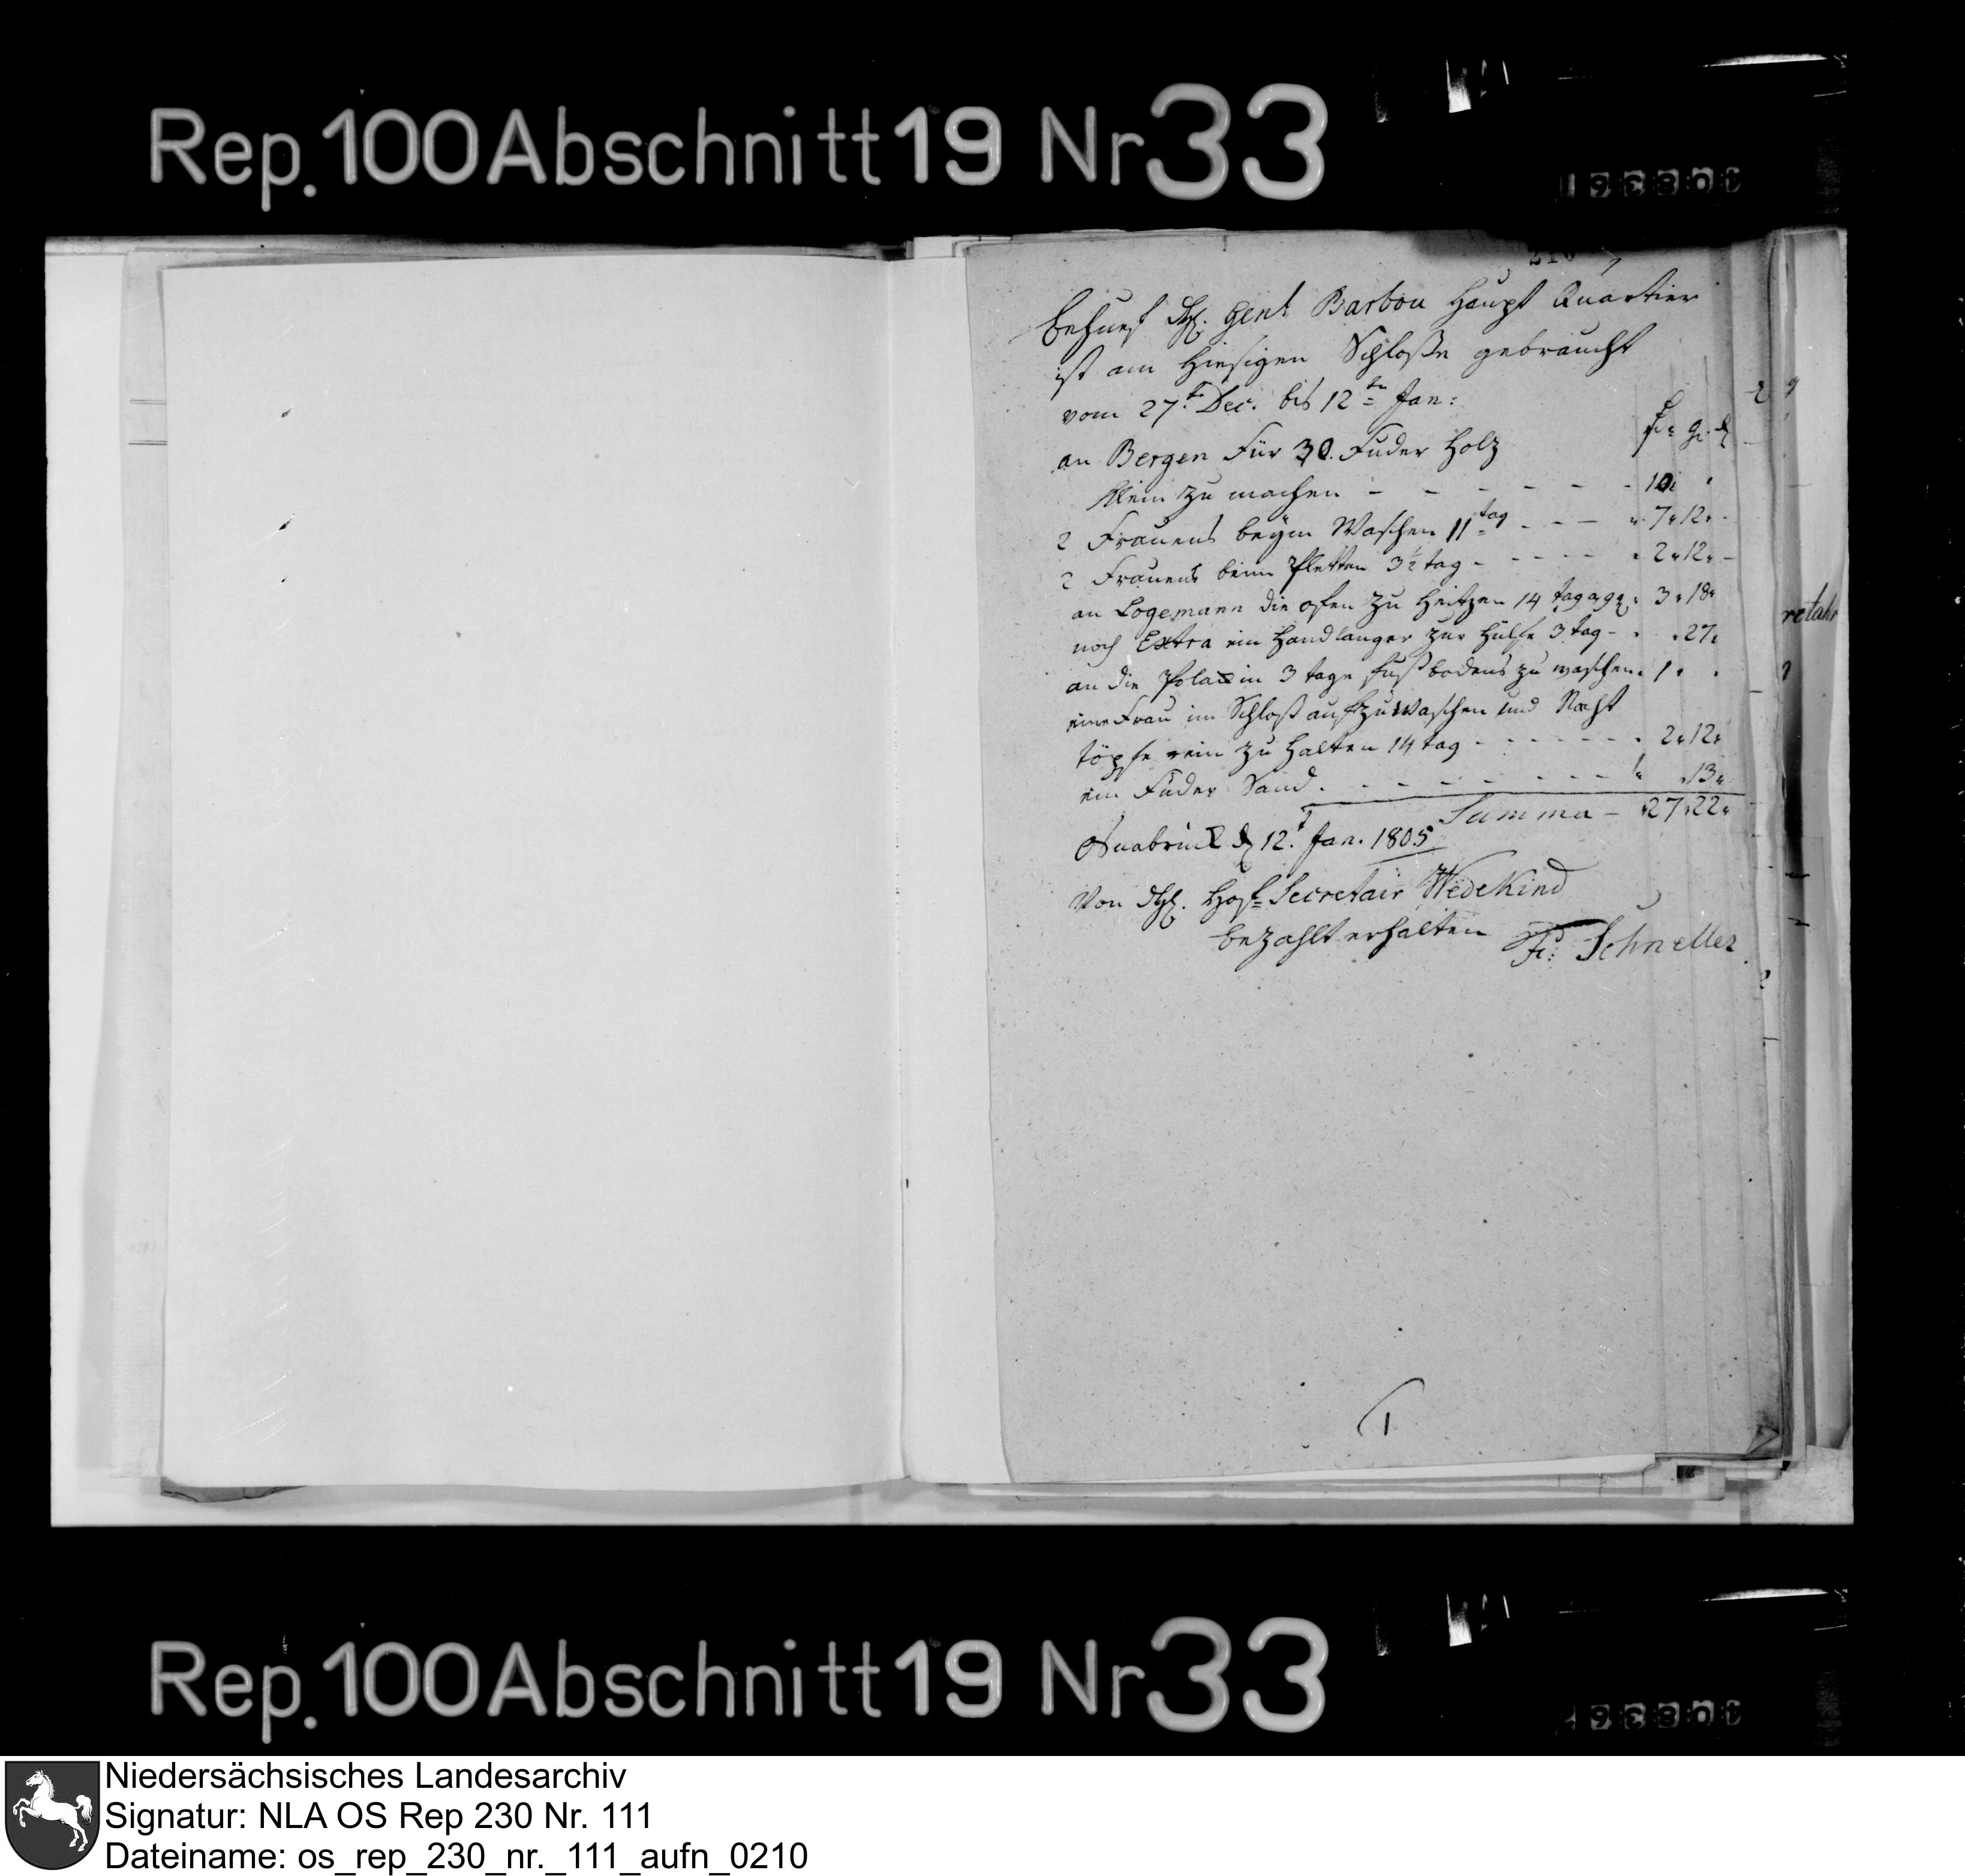 Rep.100Abschnitt19 Nr33
Behuef H. Genl Barbou Haupt Quartier
ist am hiesigen Schloße gebraucht
vom 27.t Dec. bis 12tn Jan:
an Bergen Für 30. Fuder Holz
klein zu machen - - - - - - 10
2 Frauens beÿm Waschen 11 tag - - - 7 12
2 Frauens beim Pletten 3½ tag - - - - - 2 12
an Logemann die ofen zu heitzen 14 tag 3 18
noch Extra ein Handlanger zur Hülfe 3 tag - 27
an die in 3 tage fußbodens zu waschen 1
eine Frau im Schloß aufzuwaschen und Nacht
töpfe rein zu halten 14 tag - - - - - - 2 12
ein Fuder Sand. - - - - - - - 13
Summa - 27 22
Osnabrück d 12.t Jan. 1805
Von H. Hof Secretair Wedekind
bezahlt erhalten Fr: Schneller
Rep.100Abschnitt19 Nr33
Niedersächsisches Landesarchiv
Signatur: NLA OS Rep 230 Nr. 111
Dateiname: os_rep_230_nr._111_aufn_0210